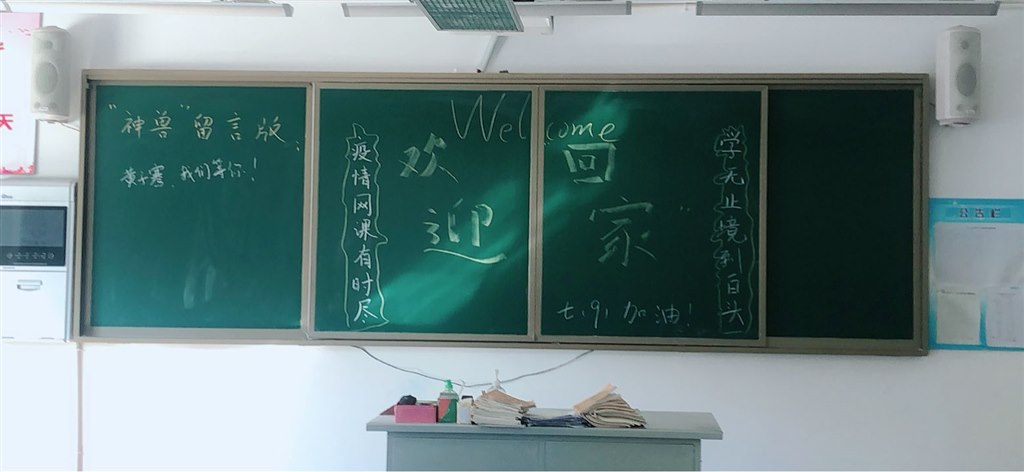 “神兽”留言版:
黄子骞,我们等你!
Welcome
欢迎
回家
疫情网课有时尽
学无止境到白头
七.9.加油!
公告栏
天